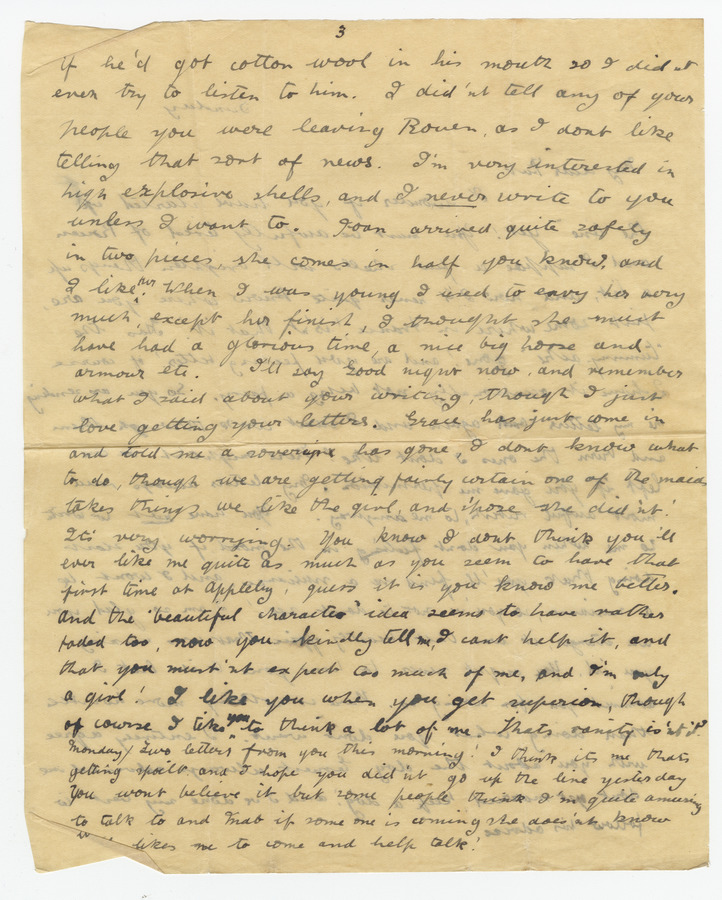 3
if he'd got cotton wool in his mouth so I did'nt
even try to listen to him. I did'nt tell any of your
people you were leaving Rouen, as I dont like
telling that sort of news. I'm very interested in
high explosive shells, and I never write to you
unless I want to. Joan arrived quite safely
in two pieces, she comes in half you know, and
I like her. When I was young I used to envy her very
much, except her finish, I thought she must
have had a glorious time, a nice big horse and
armour etc. I'll say Good night now, and remember
what I said about your writing, though I just
love getting your letters. Grace has just come in
and told me a sovereign has gone, I dont know what
to do, though we are getting fairly certain one of the maids
takes things, we like the girl, and s'pose she did'nt!
It's very worrying. You know I dont think you'll
ever like me quite as much as you seem to have that
first time at Appleby, guess it is you know me better.
And the "beautiful character" idea seems to have rather
faded too, now you kindly tell me, I cant help it, and
that you must'nt expect too much of me, and I'm only
a girl! I like you when you get superior, though
of course I like you to think a lot of me. Thats vanity is'nt it?
Monday) Two letters from you this morning! I think its me thats
getting spoilt and I hope you did'nt go up the line yesterday
You wont believe it but some people think I'm quite amusing
to talk to and Mab if some one is coming she does'nt know
likes me to come and help talk!